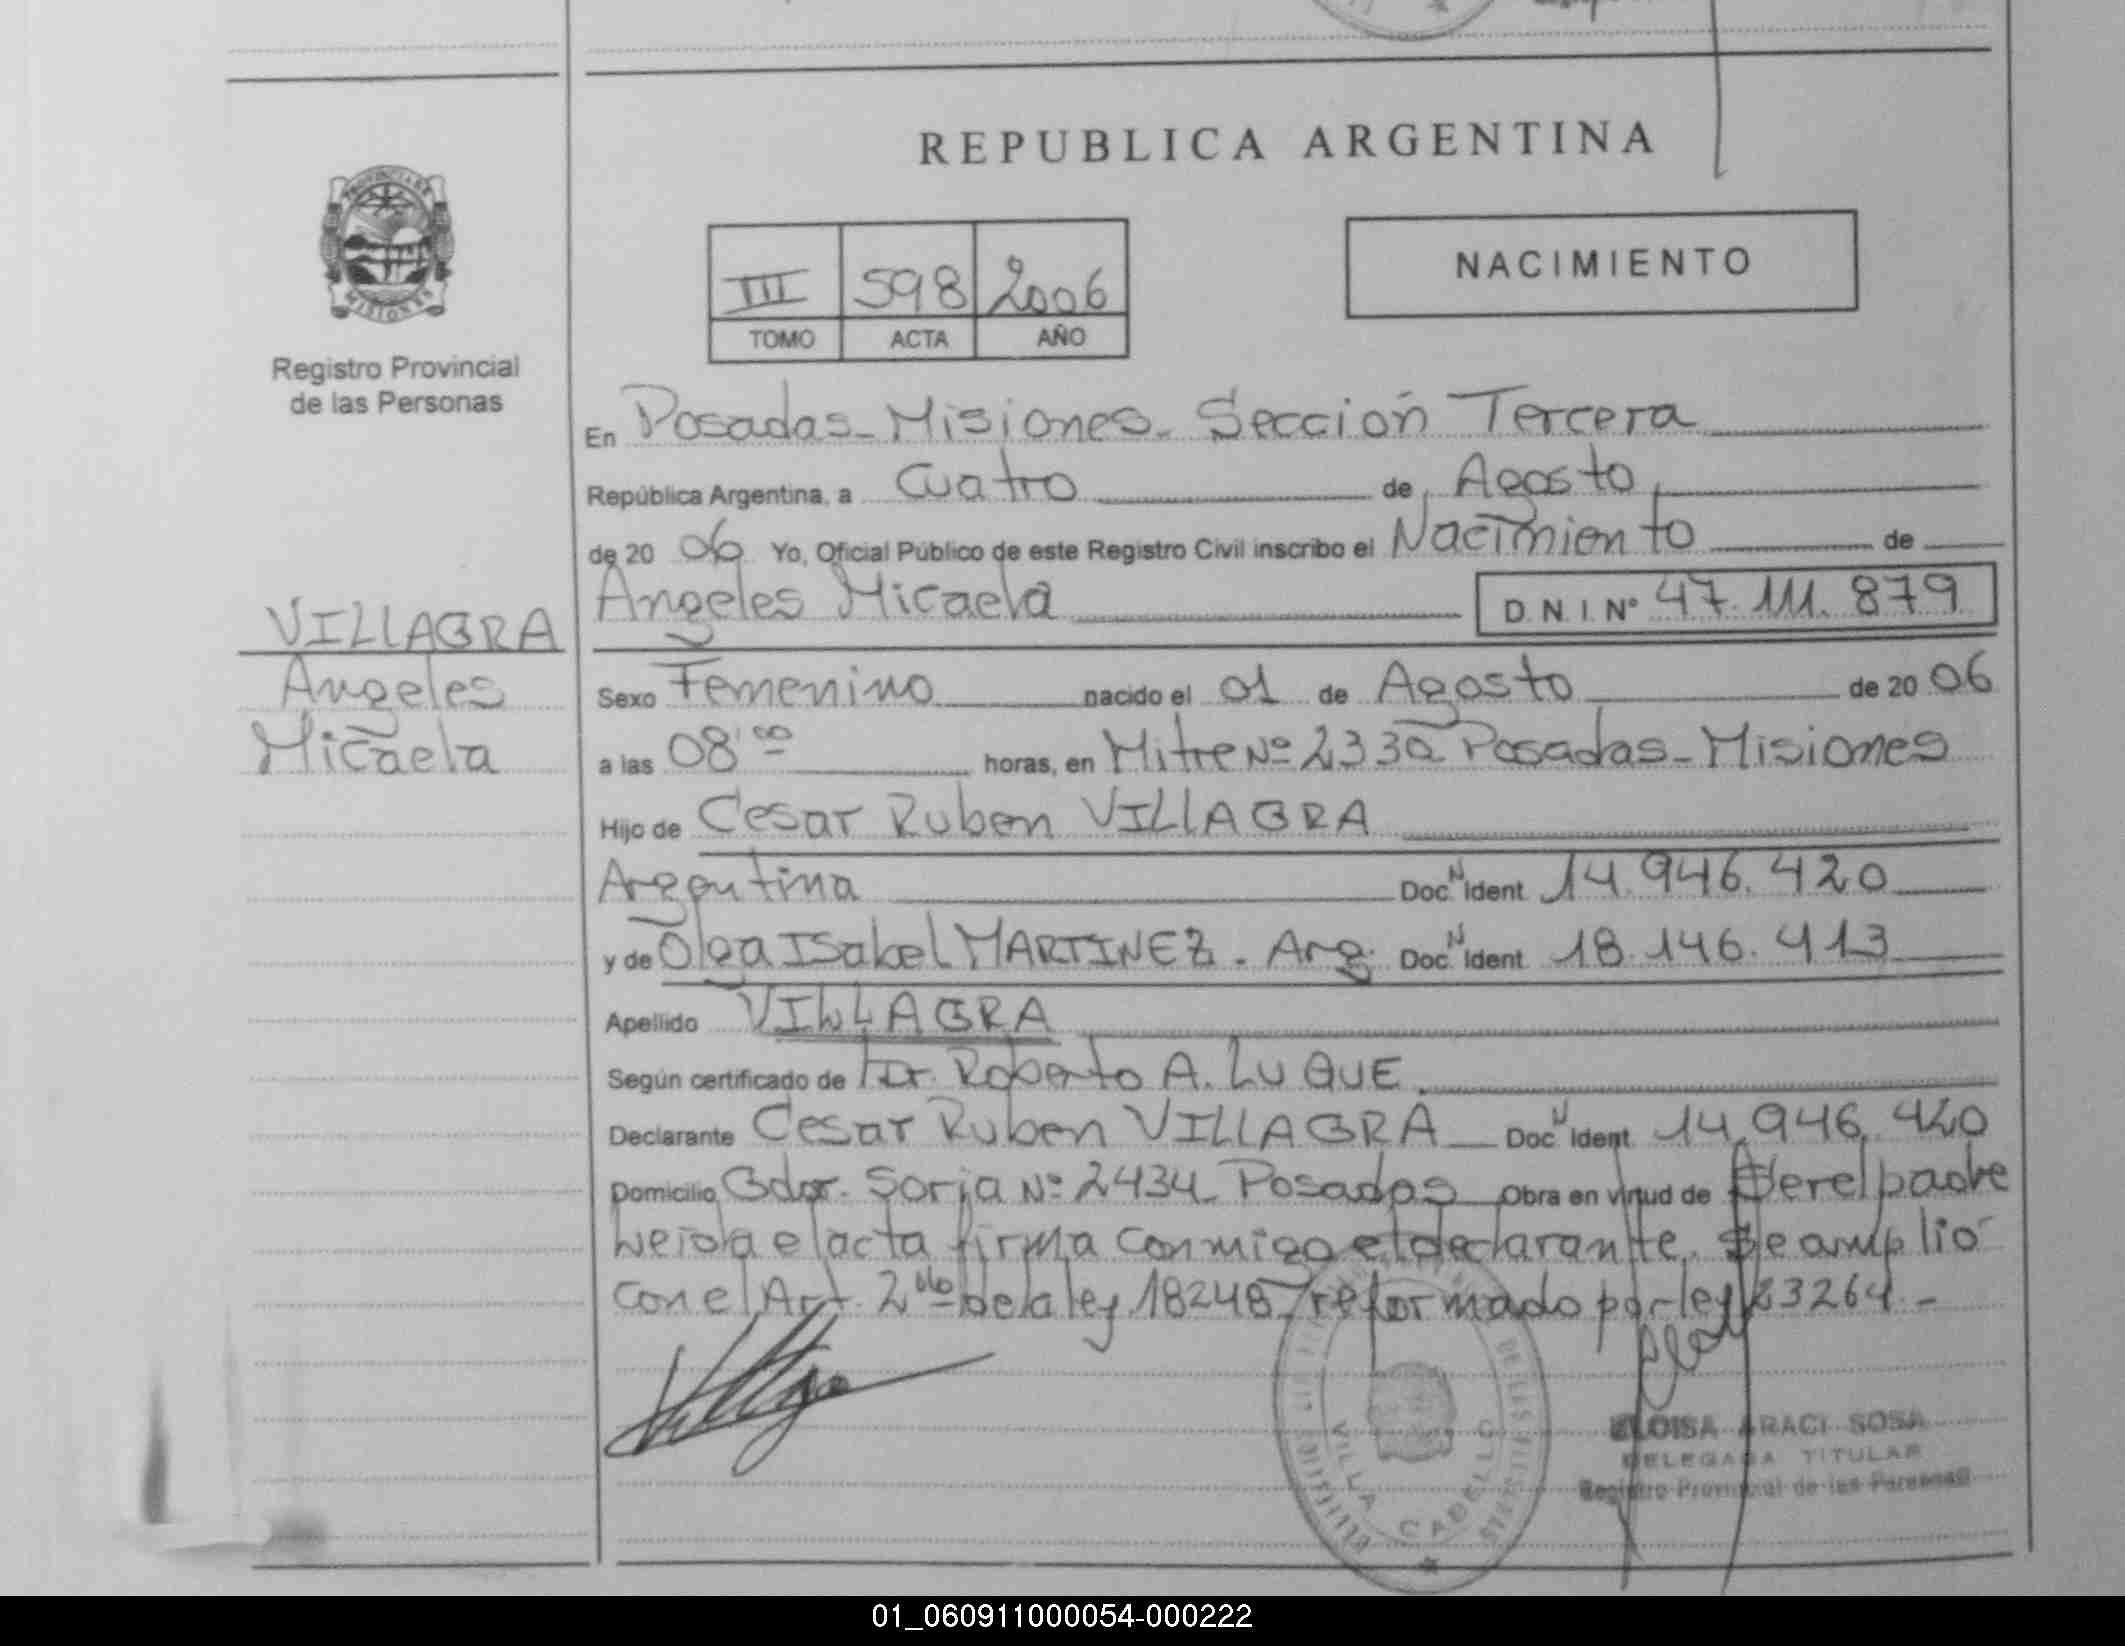 REPUBLICA ARGENTINA
PROVINCIA DE
MISIONES
Registro Provincial
de las Personas
NACIMIENTO
III 598 2006
TOMO ACTA AÑO
En Posadas - Misiones - Sección Tercera
República Argentina, a Cuatro de Agosto
de 20 06 Yo, Oficial Público de este Registro Civil inscribo el Nacimiento de
Angeles Micaela D.N.I. Nº 47.111.879
VILLAGRA
Angeles
Micaela
Sexo Femenino nacido el 01 de Agosto de 20 06
a las 08:00 horas, en Mitre Nº 2330 Posadas - Misiones
Hijo de Cesar Ruben VILLAGRA
Argentina Doc. N Ident 14.946.420
y de Olga Isabel MARTINEZ. Arg. Doc. N Ident 18.146.413
Apellido VILLAGRA
Según certificado de Dr. Roberto A. LUQUE
Declarante Cesar Ruben VILLAGRA Doc N Ident 14.946.420
Domicilio Gdor. Soria Nº 2434 Posadas Obra en virtud de ser el padre
Leida el acta firma conmigo el declarante. Se amplió
con el Art. 2do de la ley 18248 reformado por ley 23264.-
VILLA CABELLO
DE LAS PERSONAS
ELOISA ARACI SOSA
DELEGADA TITULAR
Registro Provincial de las Personas
01_060911000054-000222